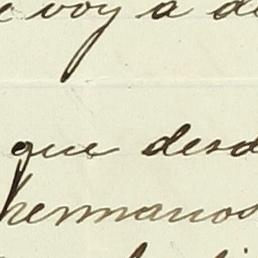 voy a
que desd
hermanos